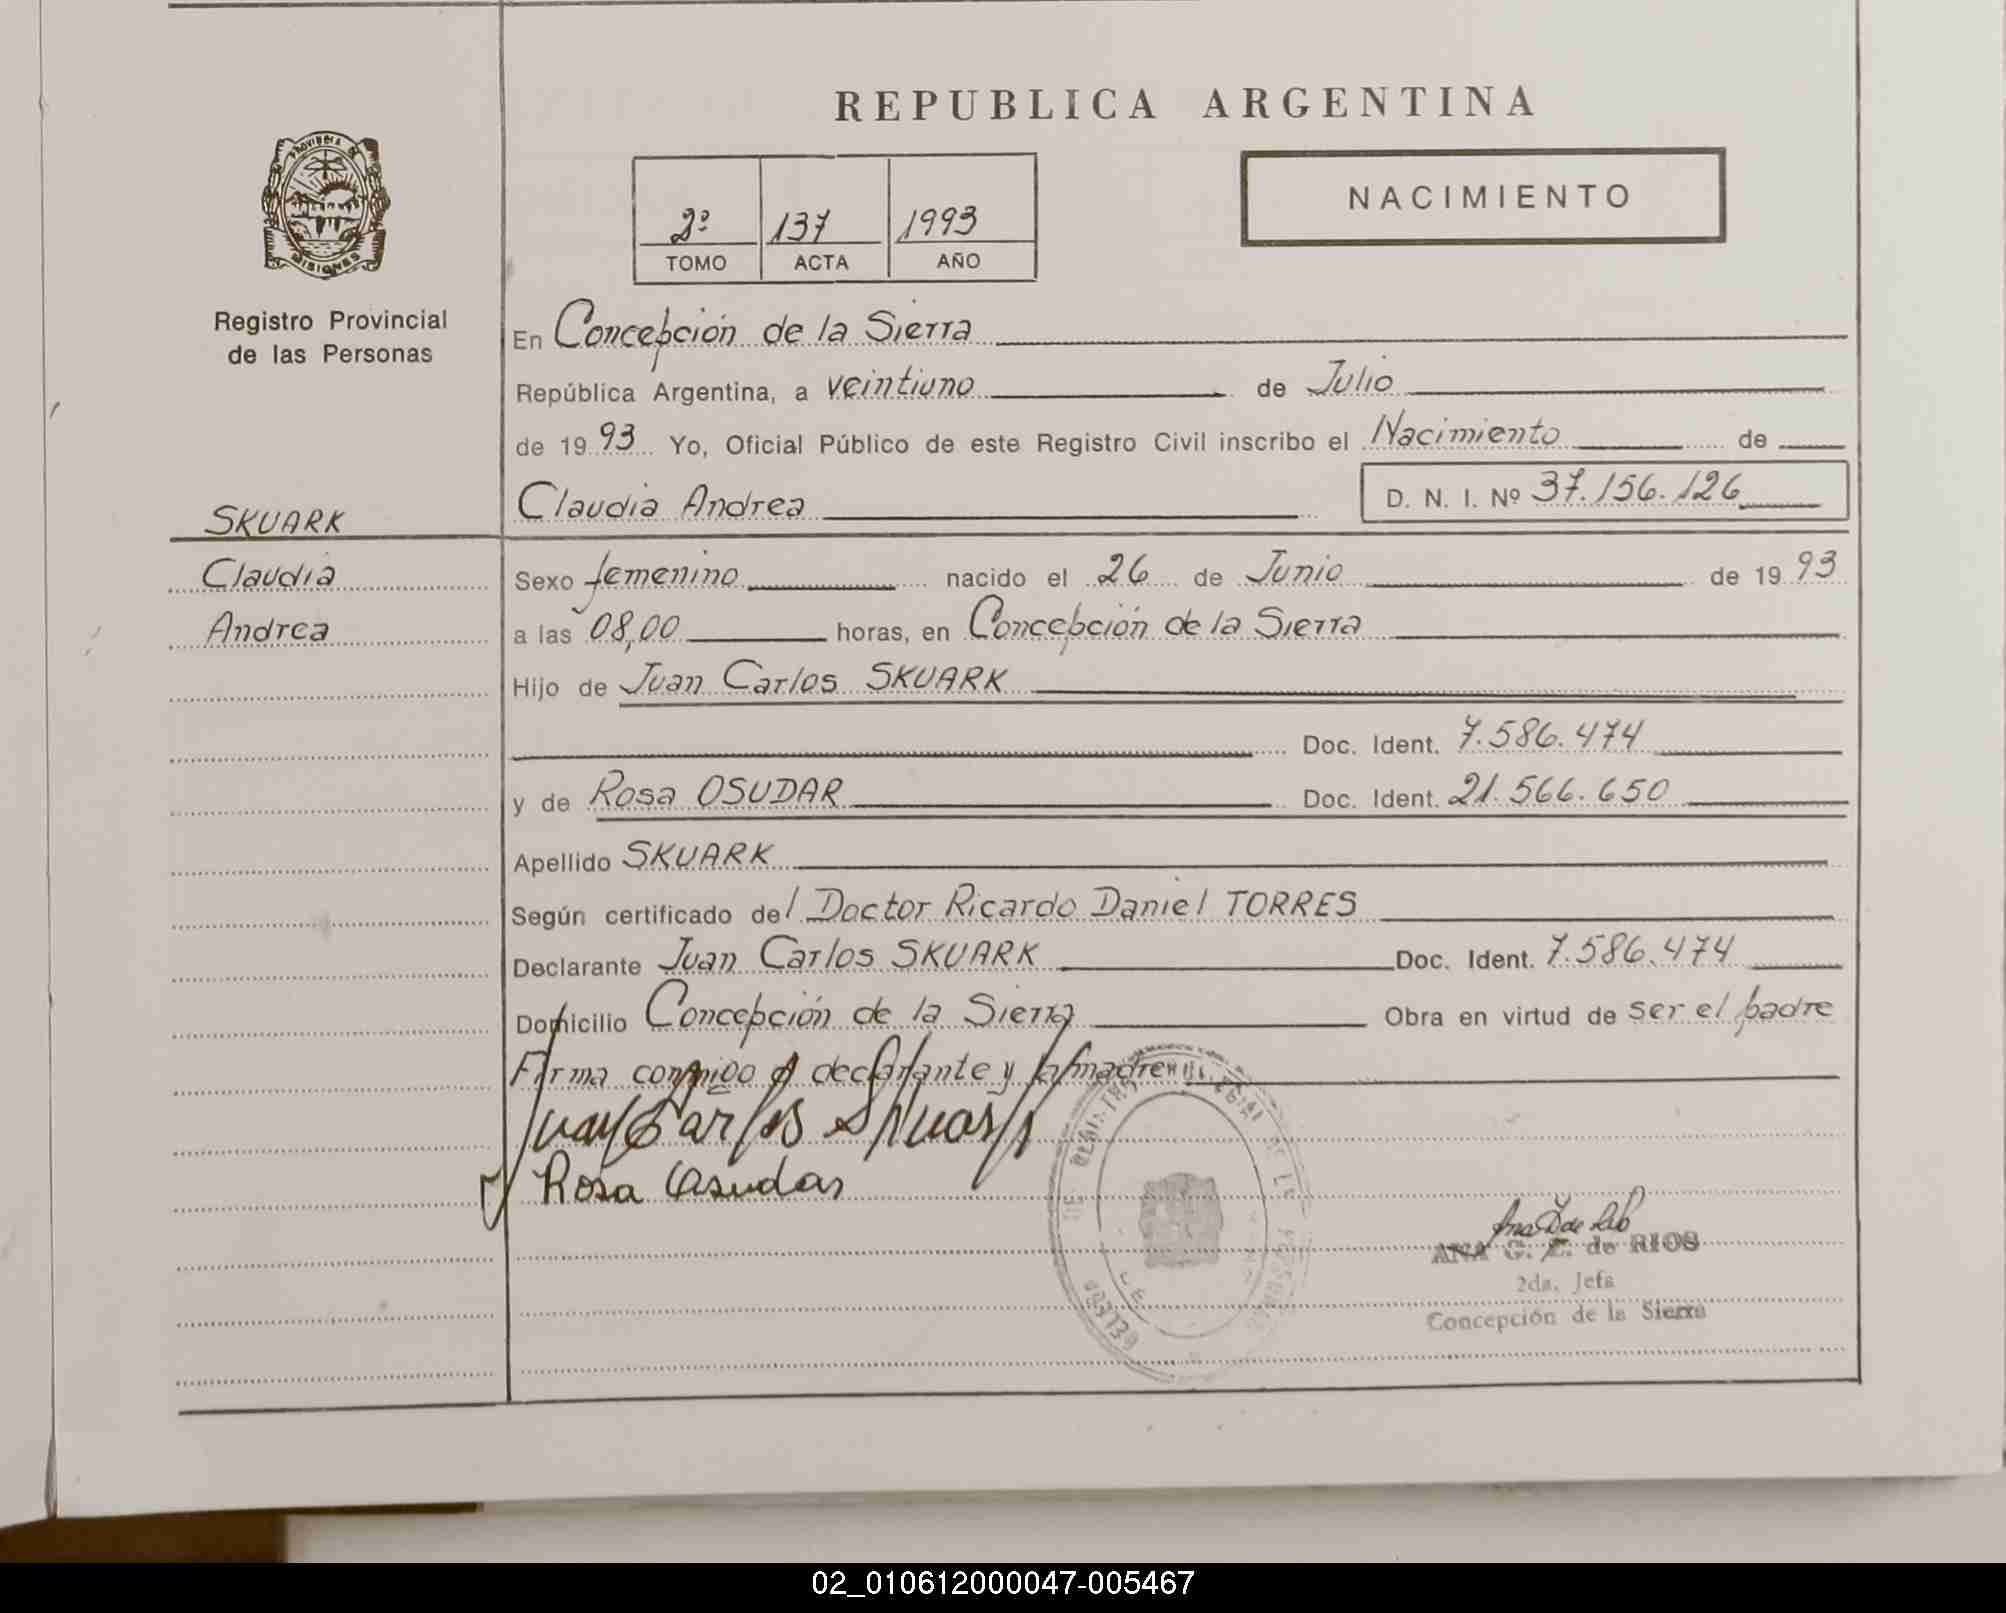 REPUBLICA ARGENTINA
PROVINCIA DE
MISIONES
NACIMIENTO
2º 137 1993
TOMO ACTA AÑO
Registro Provincial
de las Personas
En Concepción de la Sierra
República Argentina, a veintiuno de Julio
de 1993 Yo, Oficial Público de este Registro Civil inscribo el Nacimiento de
Claudia Andrea D. N. I. Nº 37.156.126
SKUARK
Claudia
Andrea
Sexo femenino nacido el 26 de Junio de 1993
a las 08,00 horas, en Concepción de la Sierra
Hijo de Juan Carlos SKUARK
Doc. Ident. 7.586.474
y de Rosa OSUDAR Doc. Ident. 21.566.650
Apellido SKUARK
Según certificado del Doctor Ricardo Daniel TORRES
Declarante Juan Carlos SKUARK Doc. Ident. 7.586.474
Domicilio Concepción de la Sierra Obra en virtud de ser el padre
Firma conmigo el declarante y la madre
Juan Carlos
Rosa Osudar
ANA G. Z. de RIOS
2da. Jefa
Concepción de la Sierra
02_010612000047-005467